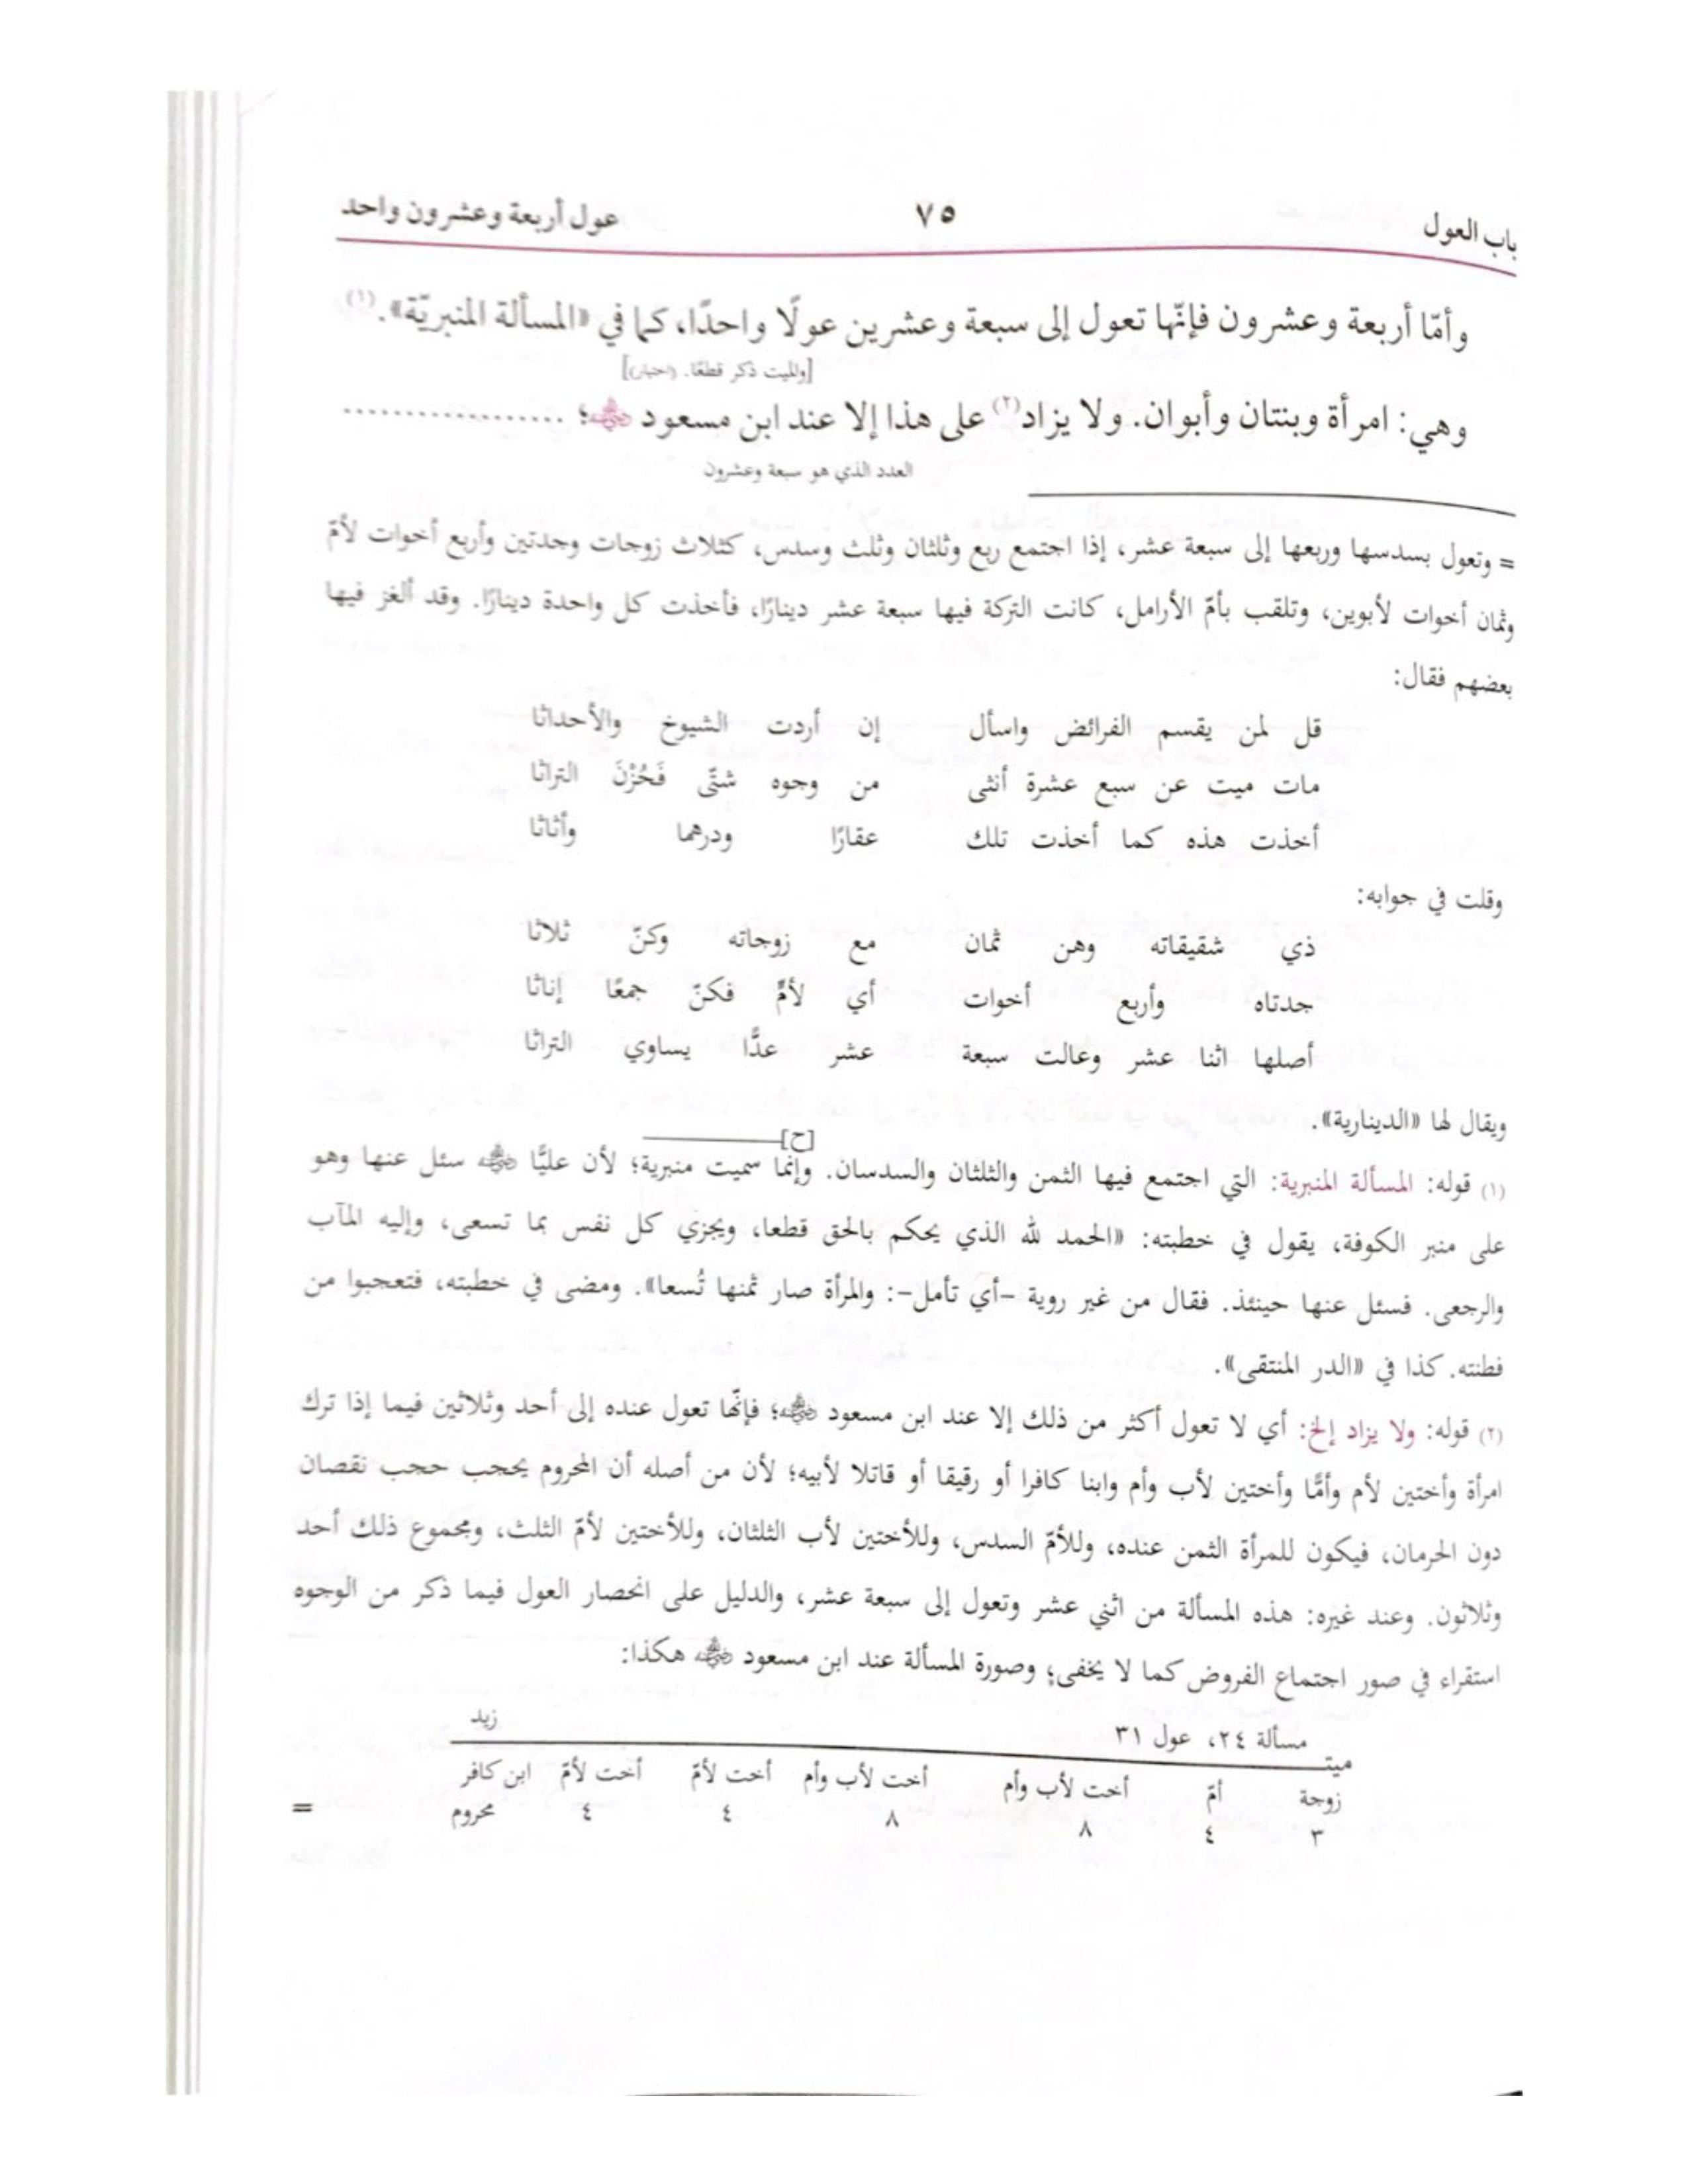 باب العول ٧٥ عول أربعة وعشرون واحد
وأمّا أربعة وعشرون فإنّها تعول إلى سبعة وعشرين عولًا واحدًا، كما في «المسألة المنبريّة».(١)
[والميت ذكر قطعًا.]
وهي: امرأة وبنتان وأبوان. ولا يزاد(٢) على هذا إلا عند ابن مسعود ﵁؛ ..................
العدد الذي هو سبعة وعشرون
= وتعول بسدسها وربعها إلى سبعة عشر، إذا اجتمع ربع وثلثان وثلث وسدس، كثلاث زوجات وجدتين وأربع أخوات لأمّ
وثمان أخوات لأبوين، وتلقب بأمّ الأرامل، كانت التركة فيها سبعة عشر دينارًا، فأخذت كل واحدة دينارًا. وقد ألغز فيها
بعضهم فقال:
قل لمن يقسم الفرائض واسأل إن أردت الشيوخ والأحداثا
مات ميت عن سبع عشرة أنثى من وجوه شتّى فَحُزْنَ التراثا
أخذت هذه كما أخذت تلك عقارًا ودرهما وأثاثا
وقلت في جوابه:
ذي شقيقاته وهن ثمان مع زوجاته وكنّ ثلاثا
جدتاه وأربع أخوات أي لأمٍّ فكنّ جمعًا إناثا
أصلها اثنا عشر وعالت سبعة عشر عدًّا يساوي التراثا
ويقال لها «الدينارية».
[ح]
(١) قوله: المسألة المنبرية: التي اجتمع فيها الثمن والثلثان والسدسان. وإنما سميت منبرية؛ لأن عليًّا ﵁ سئل عنها وهو
على منبر الكوفة، يقول في خطبته: «الحمد لله الذي يحكم بالحق قطعا، ويجزي كل نفس بما تسعى، وإليه المآب
والرجعى. فسئل عنها حينئذ. فقال من غير روية -أي تأمل-: والمرأة صار ثمنها تُسعا». ومضى في خطبته، فتعجبوا من
فطنته. كذا في «الدر المنتقى».
(٢) قوله: ولا يزاد إلخ: أي لا تعول أكثر من ذلك إلا عند ابن مسعود ﵁؛ فإنّها تعول عنده إلى أحد وثلاثين فيما إذا ترك
امرأة وأختين لأم وأمًّا وأختين لأب وأم وابنا كافرا أو رقيقا أو قاتلا لأبيه؛ لأن من أصله أن المحروم يحجب حجب نقصان
دون الحرمان، فيكون للمرأة الثمن عنده، وللأمّ السدس، وللأختين لأب الثلثان، وللأختين لأمّ الثلث، ومجموع ذلك أحد
وثلاثون. وعند غيره: هذه المسألة من اثني عشر وتعول إلى سبعة عشر، والدليل على انحصار العول فيما ذكر من الوجوه
استقراء في صور اجتماع الفروض كما لا يخفى؛ وصورة المسألة عند ابن مسعود ﵁ هكذا:
مسألة ٢٤، عول ٣١ زيد
ميتـ
زوجة أمّ أخت لأب وأم أخت لأب وأم أخت لأمّ أخت لأمّ ابن كافر
٣ ٤ ٨ ٨ ٤ ٤ محروم =